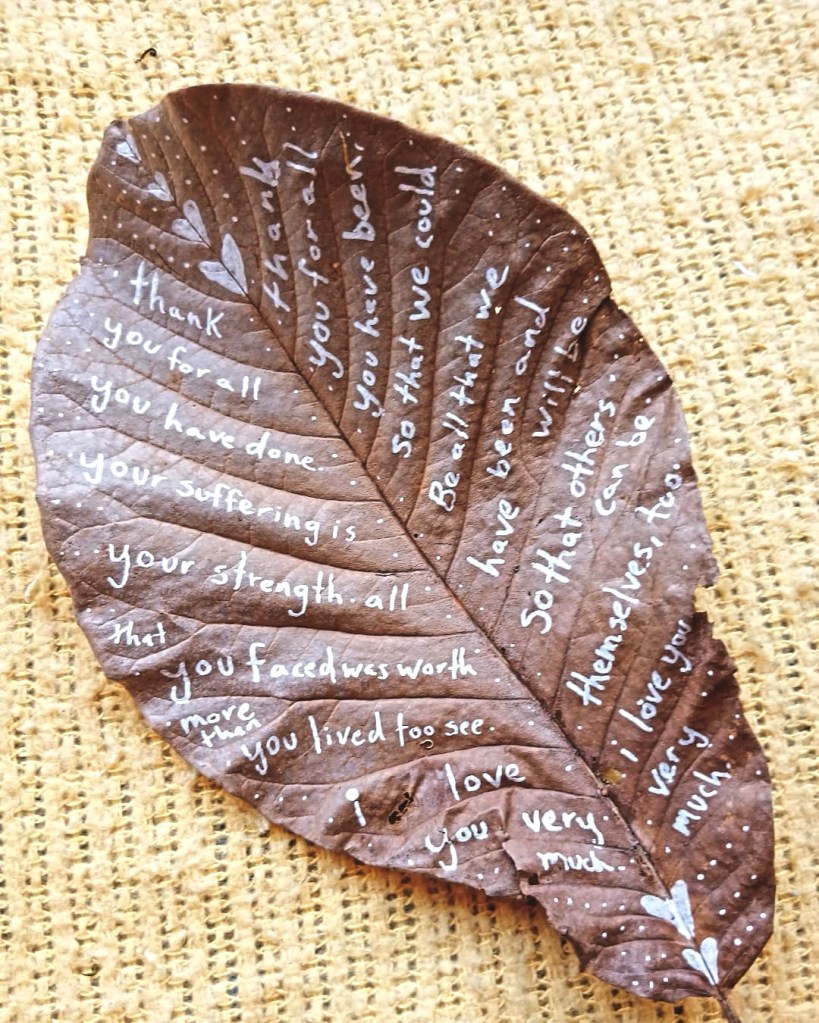 thank
you for all
you have done.
your suffering is
your strength. all
that
you faced was worth
more
than
you lived too see.
i love
you very
much.
thank
you for all
you have been.
so that we could
Be all that we
have been and
will be
So that others
can be
themselves, too.
i love you
very
much.